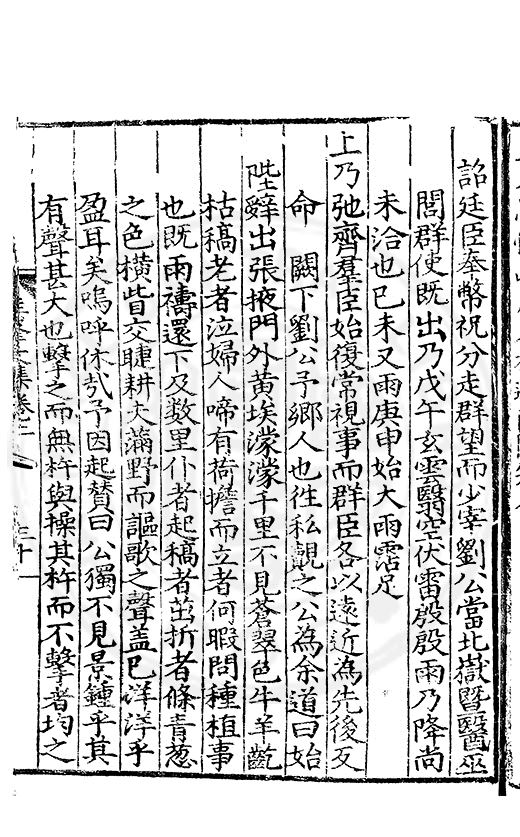 詔廷臣奉幣祝分走群望而少宰劉公當北嶽暨醫巫
閭群使既出乃戊午玄雲翳空伏雷殷殷雨乃降尚
未洽也巳未又雨庚申始大雨霑足
上乃弛齊羣臣始復常視事而群臣各以遠近為先後反
命　闕下劉公予鄉人也徃私覿之公為余道曰始
陛辭出張掖門外黄埃濛濛千里不見蒼翠色牛羊齕
枯稿老者泣婦人啼有荷擔而立者何暇問種植事
也既雨禱還下及数里仆者起稿者茁折者條青葱
之色橫眥交睫耕夫滿野而謳歌之聲盖巳洋洋乎
盈耳矣嗚呼休㢤予因起贊曰公獨不見景鍾乎其
有聲甚大也擊之而無杵與操其杵而不擊者均之
集卷二
三十